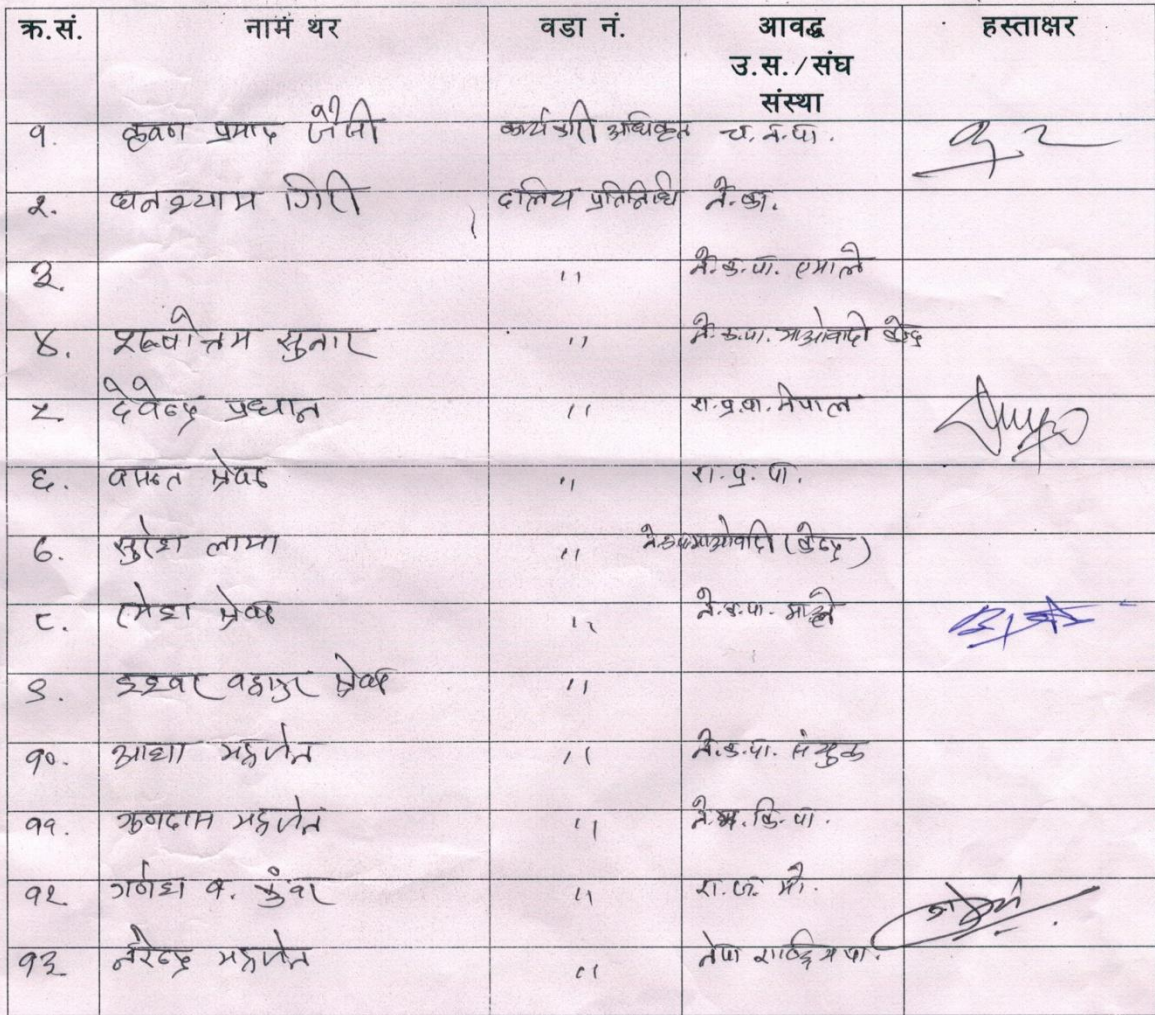 क्र.सं. नाम थर वडा नं. आवद्ध हस्ताक्षर
उ.स./संघ
संस्था
१. कृष्ण प्रसाद जैसी कार्यकारी अधिकृत च.न.पा.
२. घनश्याम गिरी दलिय प्रतिनिधि ने.का.
३ " ने.क.पा. एमाले
४. पुरुषोत्तम सुनार " ने.क.पा. माओवादी केन्द्र
५ देवेन्द्र प्रधान " रा.प्र.पा. नेपाल
६. वसन्त श्रेष्ठ " रा.प्र.पा.
७. सुरेश लामा " ने.क.पा माओवादि (केन्द्र)
८. रमेश श्रेष्ठ " ने.क.पा. माले
९. इश्वर बहादुर श्रेष्ठ "
१०. आशा महर्जन " ने.क.पा. संयुक्त
११. महर्जन " ने.म.कि.पा.
१२ गणेश व. कुंवर " रा.ज.मो.
१३ नरेन्द्र महर्जन " नेपा राष्ट्रिय पा.